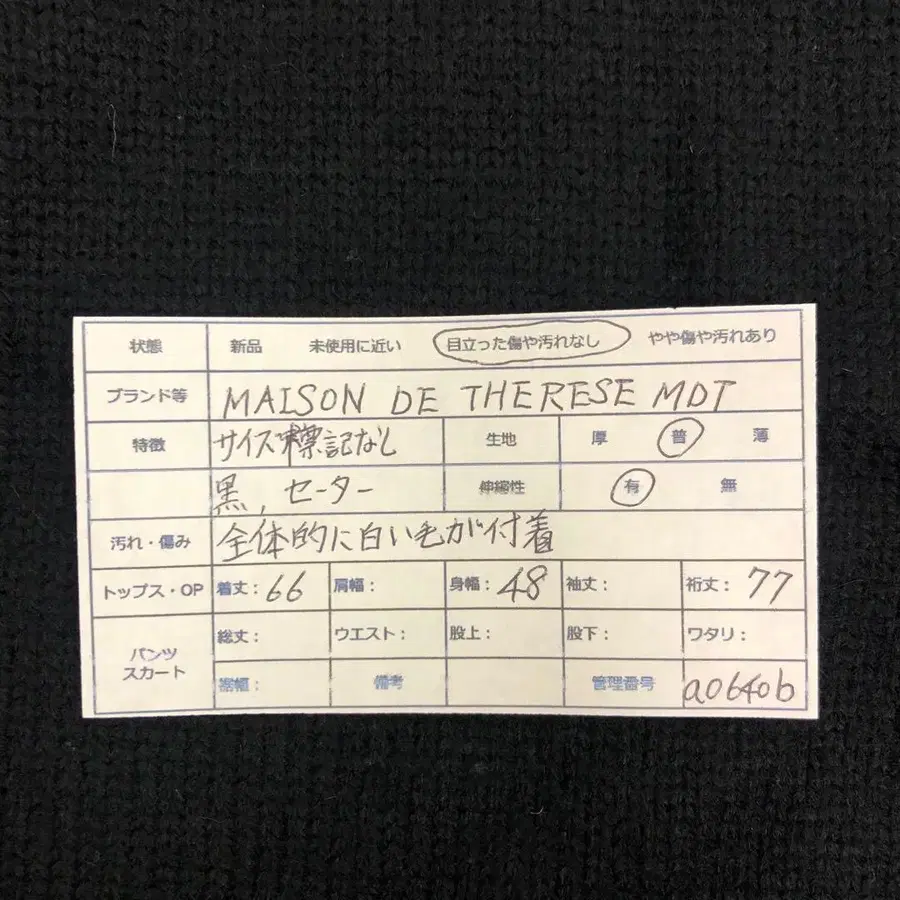 状態 新品 未使用に近い 目立った傷や汚れなし やや傷や汚れあり
ブランド等 MAISON DE THERESE MDT
特徴 サイズ標記なし 生地 厚 普 薄
黒, セーター 伸縮性 有 無
汚れ・傷み 全体的に白い毛が付着
トップス・OP 着丈:66 肩幅: 身幅:48 袖丈: 裄丈:77
パンツ スカート 総丈: ウエスト: 股上: 股下: ワタリ:
裾幅: 備考 管理番号 a0640b